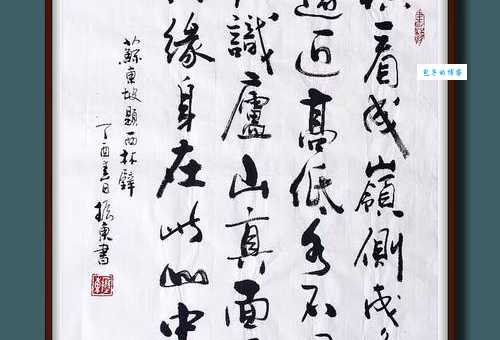 看成嶺側成
遠近高低各不
識廬山真面
緣身在此山中
蘇東坡題西林壁
丁酉春日振東書
的博客